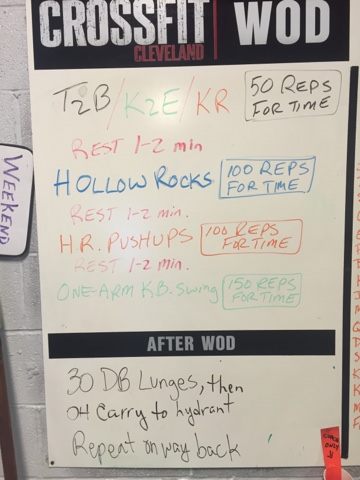 CROSSFIT WOD
CLEVELAND
T2B/K2E/KR 50 REPS
FOR TIME
REST 1-2 min
HOLLOW ROCKS 100 REPS
FOR TIME
REST 1-2 min.
H.R. PUSHUPS 100 REPS
FOR TIME
REST 1-2 min.
ONE-ARM KB. Swing 150 REPS
FOR TIME
WEEKEND
AFTER WOD
30 DB Lunges, then
OH Carry to hydrant
Repeat on way back
COACH
ONLY